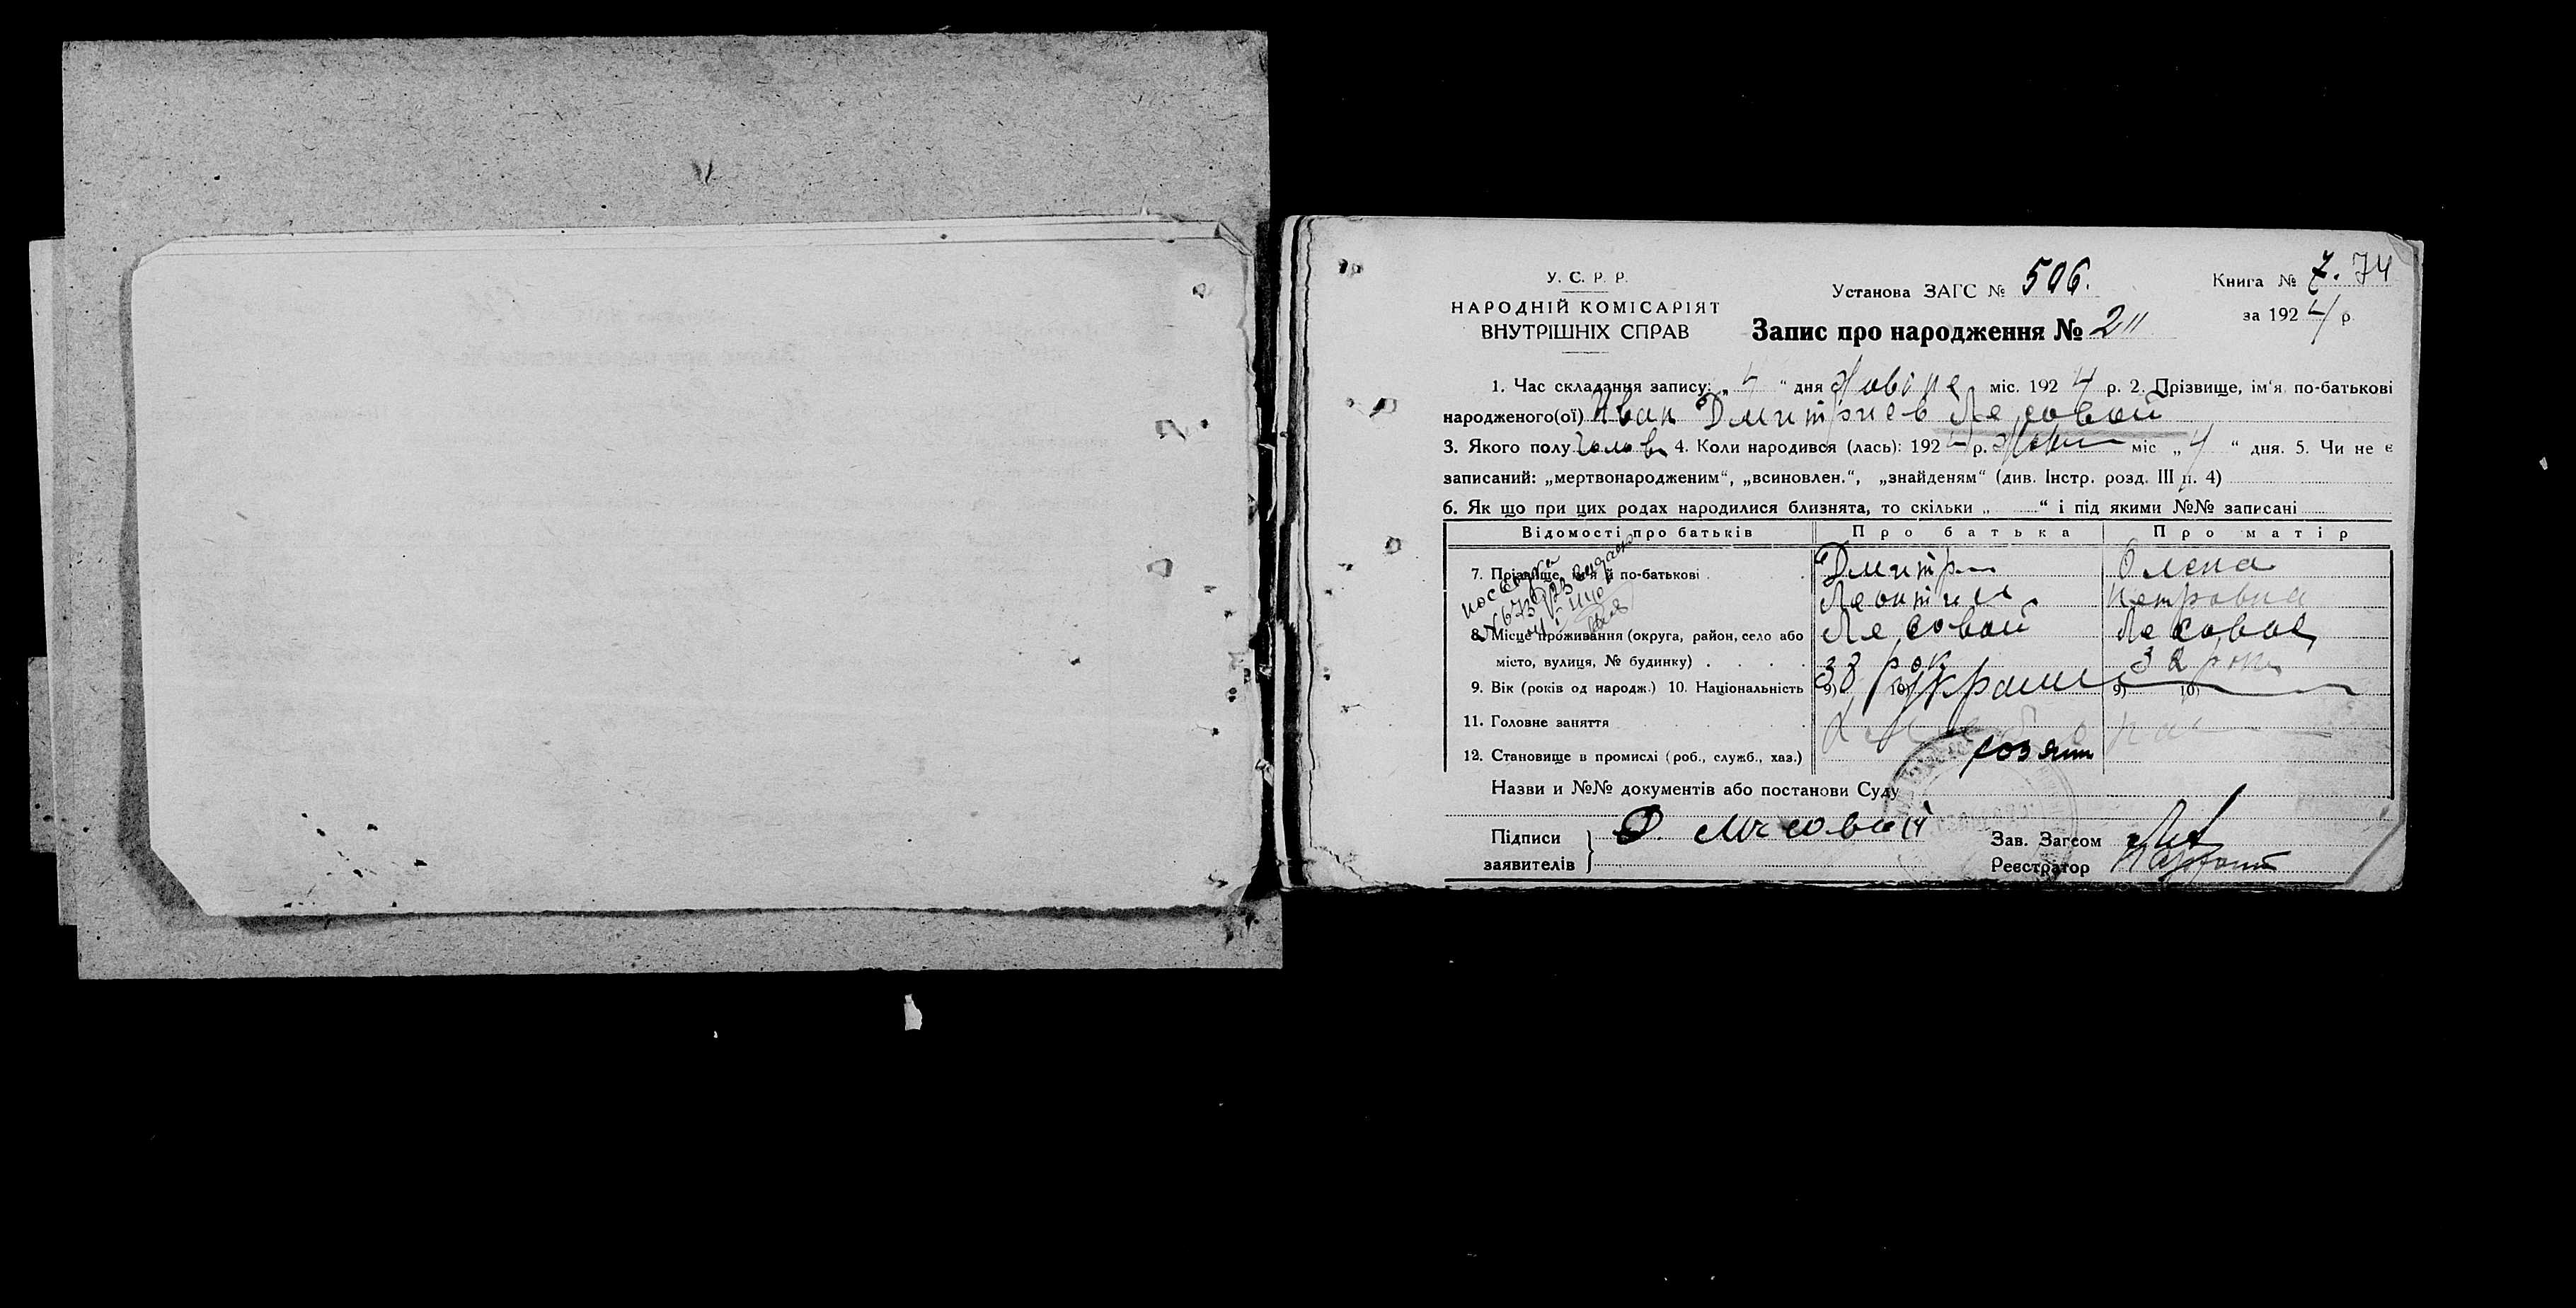 У. С. Р. Р.
НАРОДНІЙ КОМІСАРІЯТ
ВНУТРІШНІХ СПРАВ
Установа ЗАГС № 506.
Книга № 7. 74
за 1924 р
Запис про народження № 211
1. Час складання запису: „ 4 “ дня міс. 1924 р. 2. Прізвище, ім'я по-батькові
народженого(ої) Иван Дмитриев Лесовой
3. Якого полу 4. Коли народився (лась): 192 р. міс „ 4 “ дня. 5. Чи не є
записаний: „мертвонародженим“, „всиновлен.“, „знайденям“ (див. Інстр. розд. III п. 4)
6. Як що при цих родах народилися близнята, то скільки „ “ і під якими №№ записані
Відомості про батьків Про батька Про матір
7. Прізвище, ім'я й по-батькові Дмитр Олена
Петровна
8. Місце проживання (округа, район, село або Лесовой Лесовая
місто, вулиця, № будинку) 38 рок 32 рок
9. Вік (років од народж.) 10. Національність 9) 10) 9) 10)
11. Головне заняття
12. Становище в промислі (роб., служб., хаз.) хозяин
Назви и №№ документів або постанови Суду
Підписи
заявителів
Зав. Загсом
Реєстратор